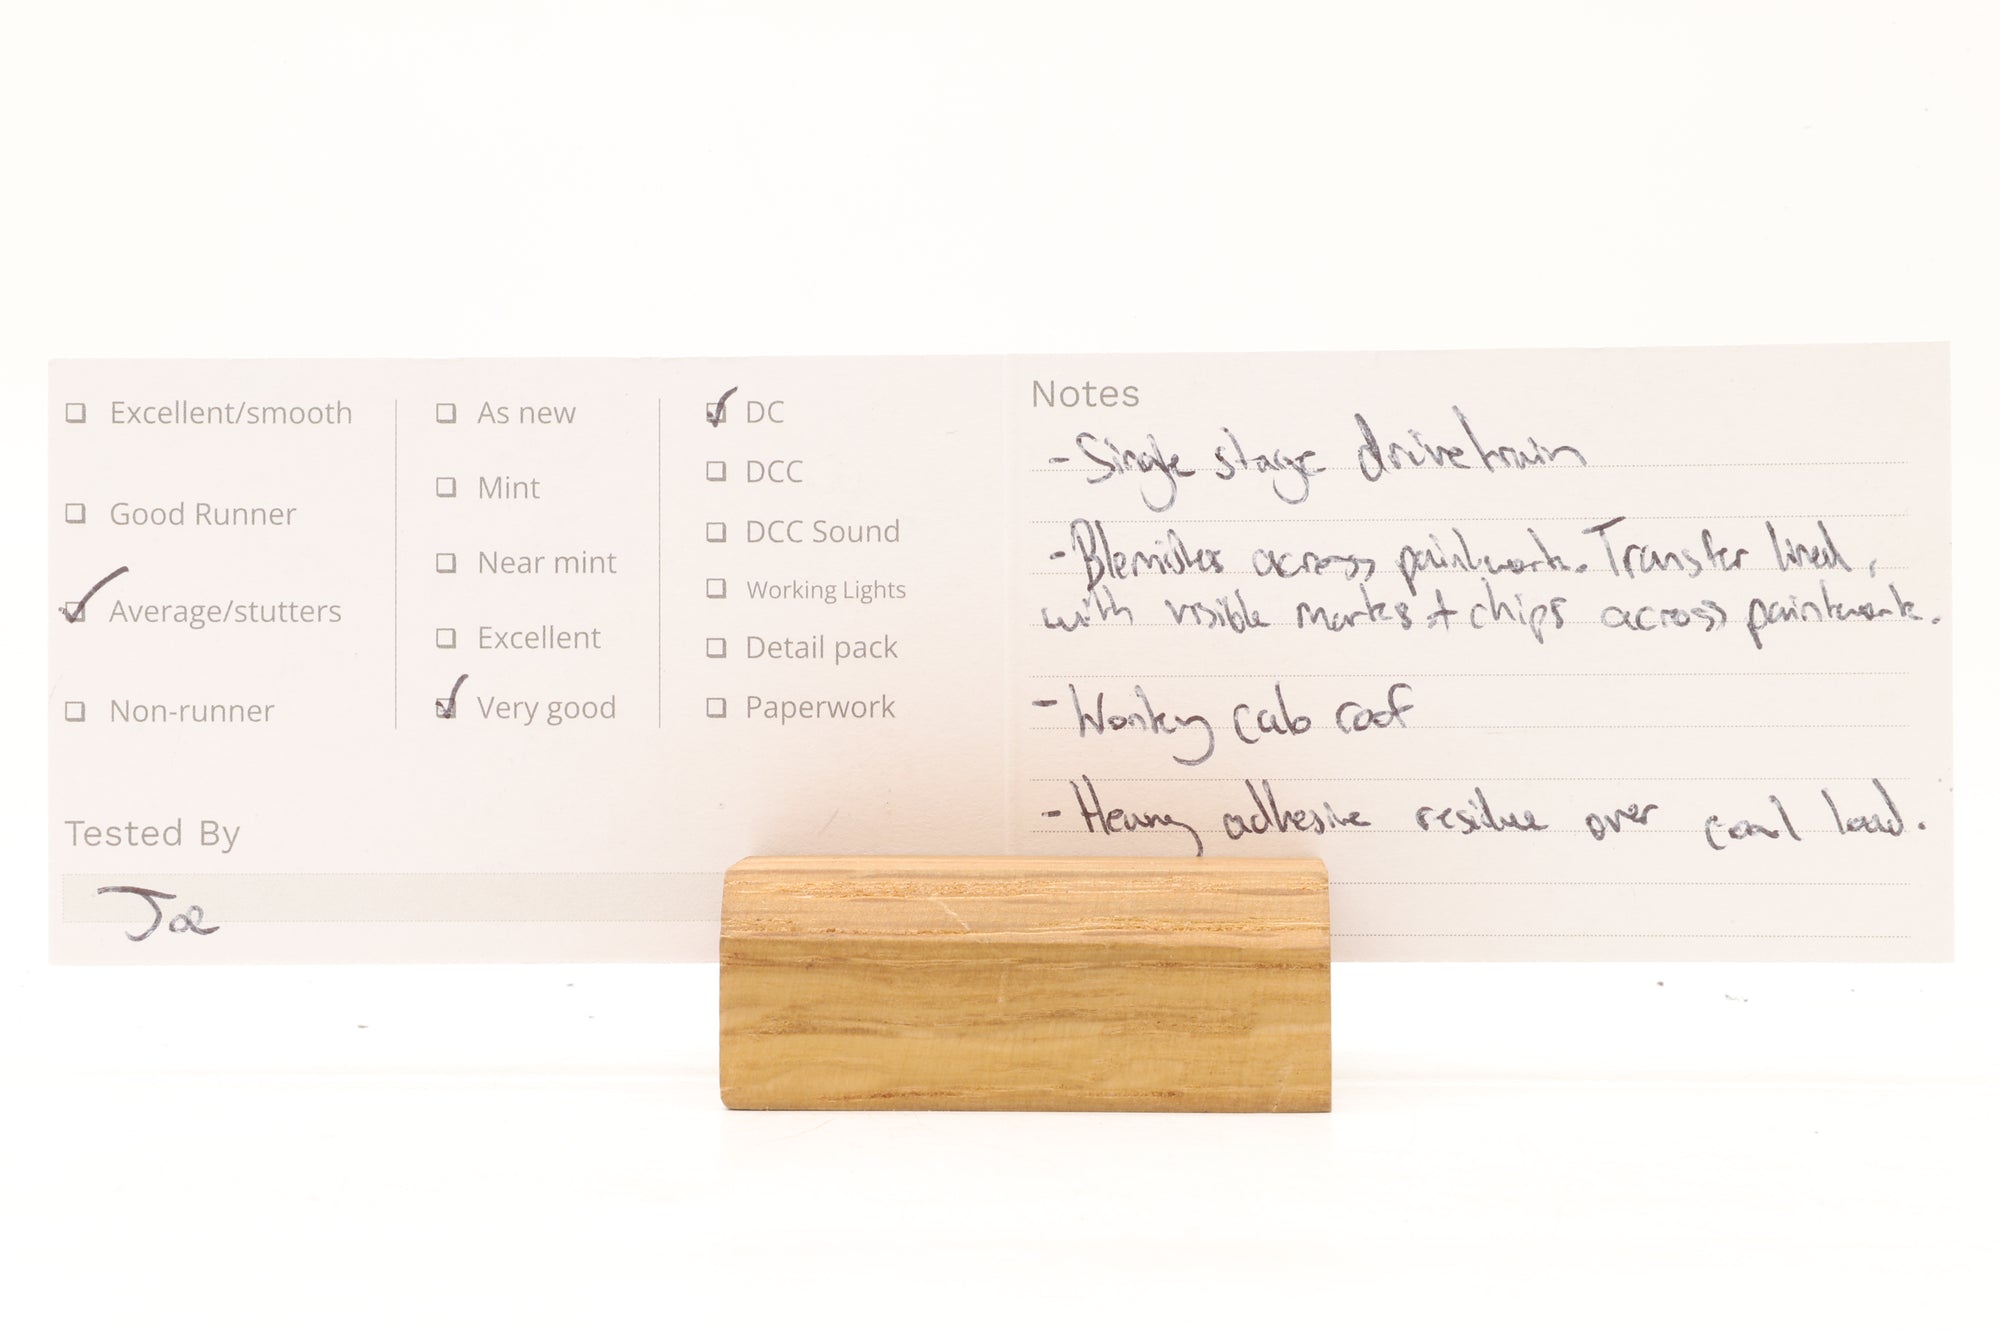 Excellent/smooth
Good Runner
Average/stutters
Non-runner
As new
Mint
Near mint
Excellent
Very good
DC
DCC
DCC Sound
Working Lights
Detail pack
Paperwork
Tested By
Joe
Notes
- Single stage drivetrain
- Blemishes across paintwork. Transfer lined,
with visible marks + chips across paintwork.
- Wonky cab roof
- Heavy adhesive residue over coal load.